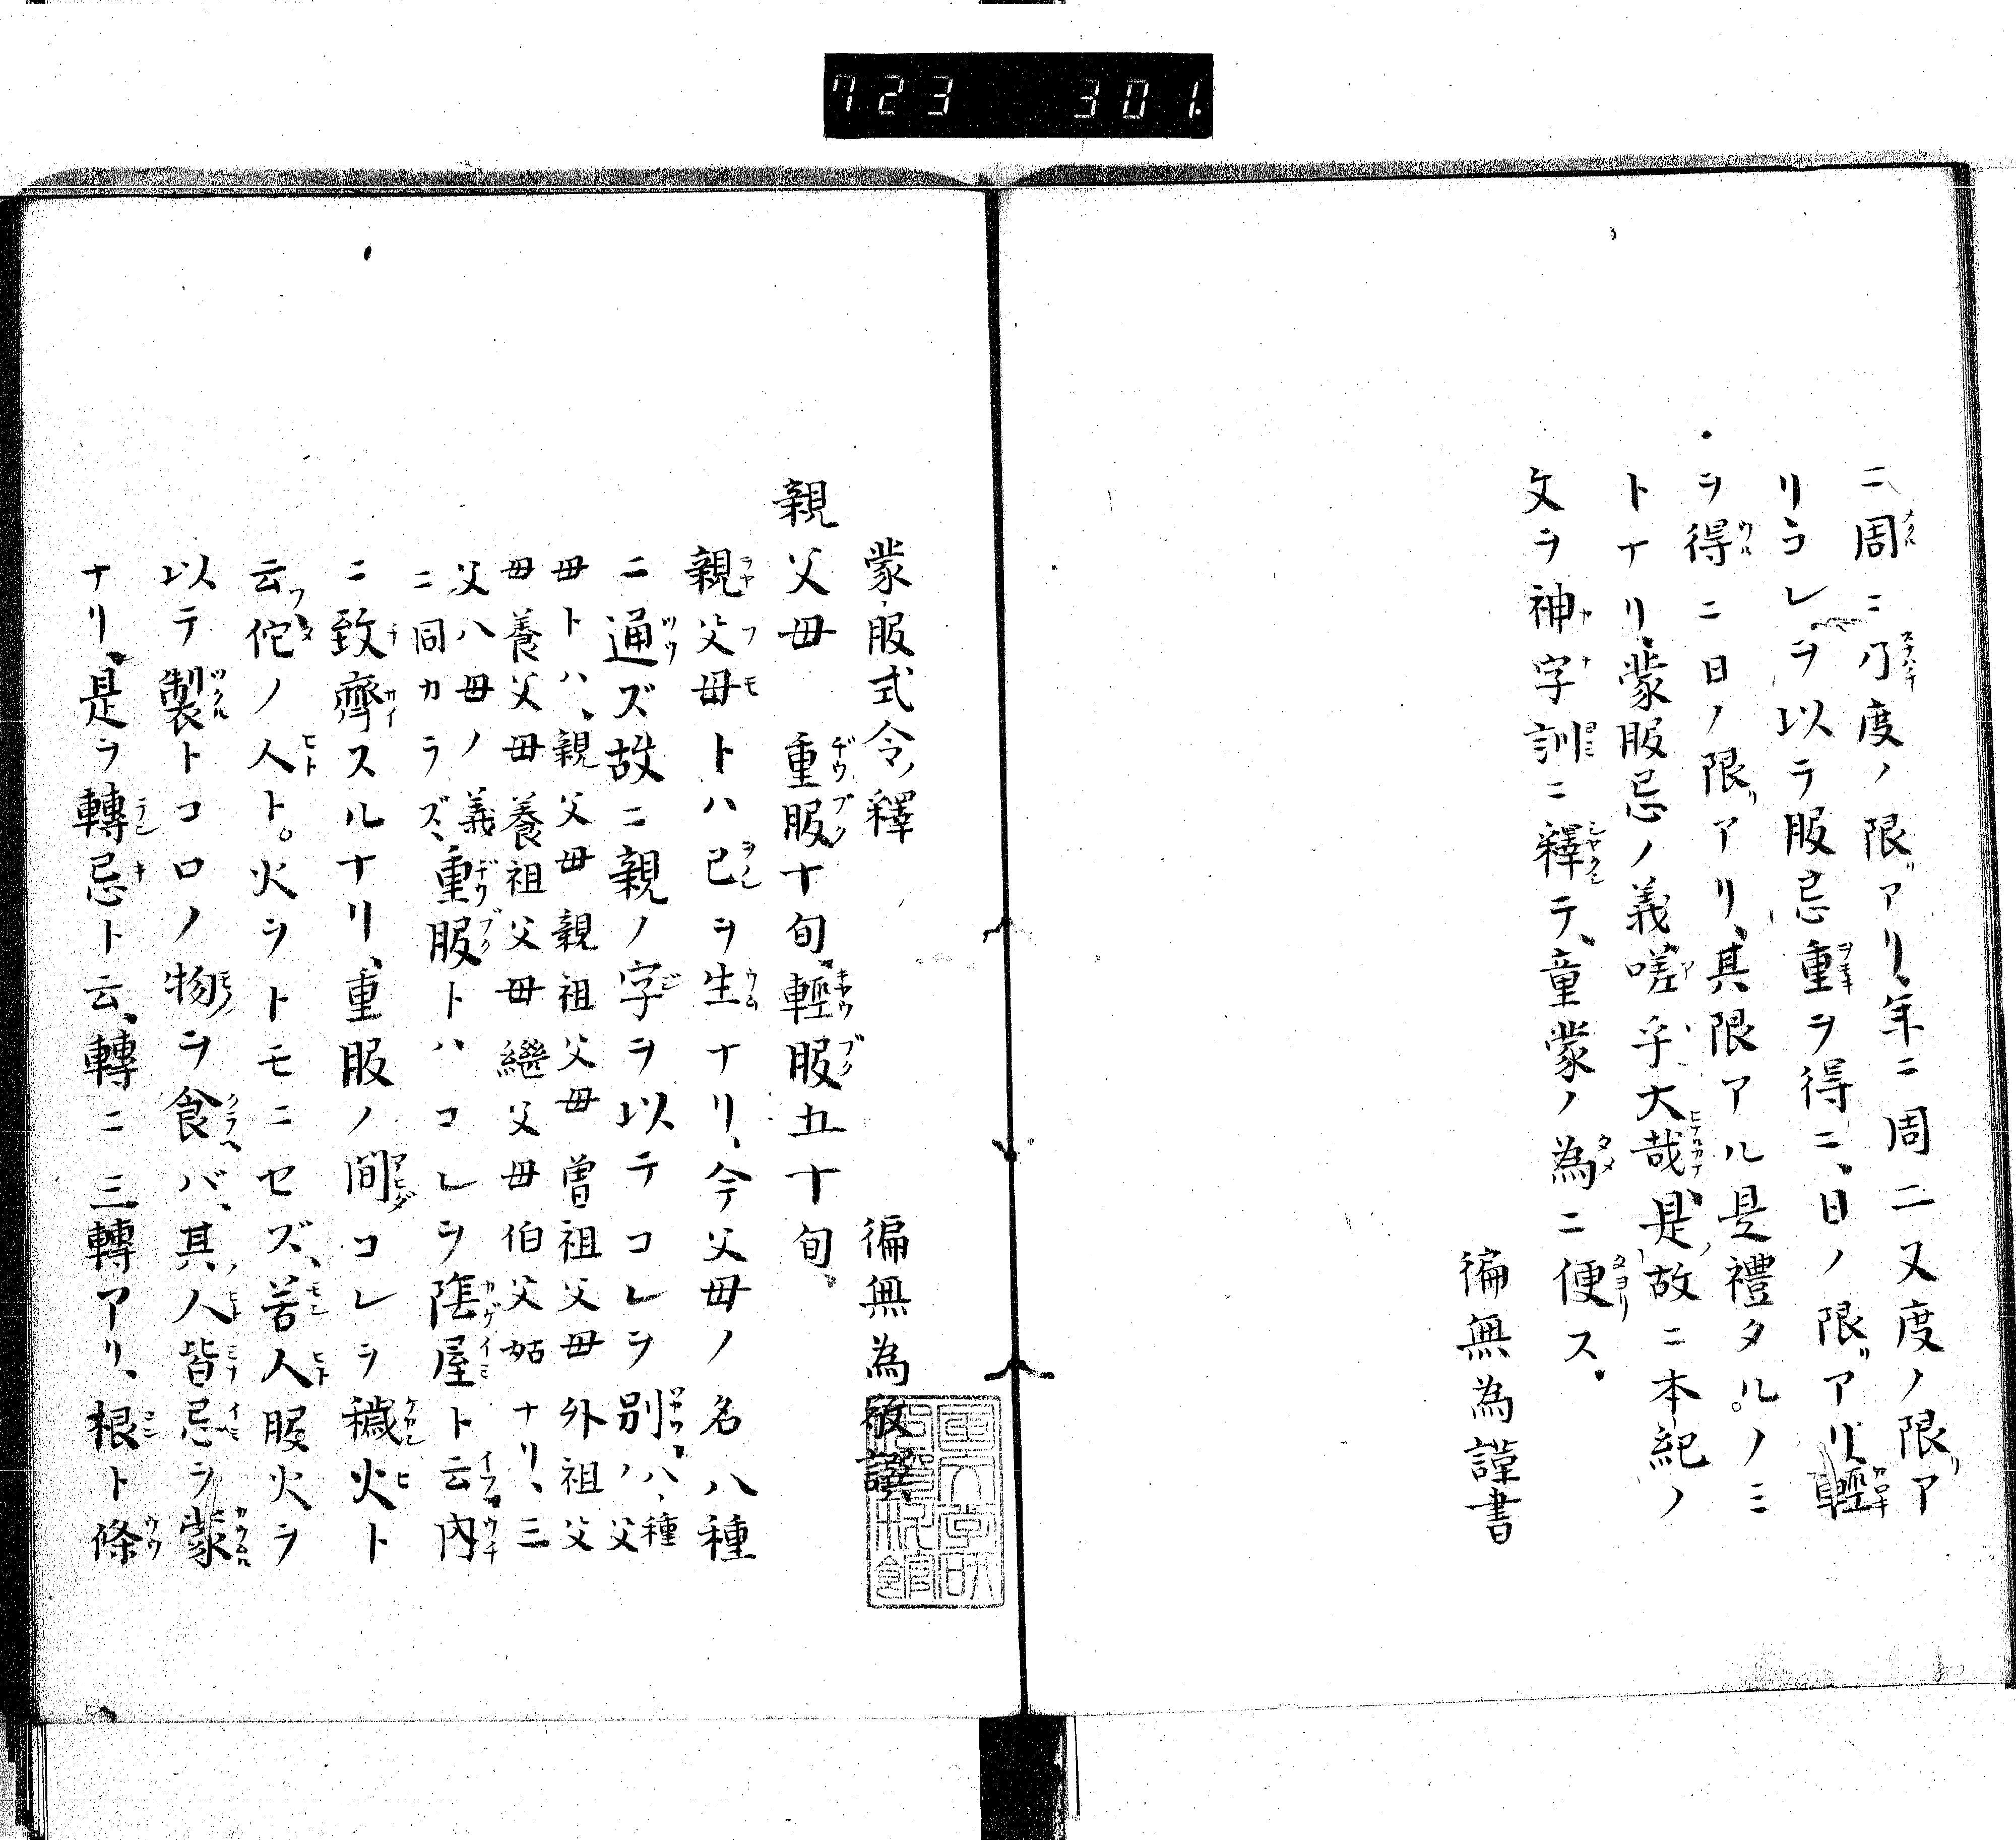 723 301.
ニ周ニ乃度ノ限アリ、年ニ周二又度ノ限ア
リコレヲ以テ服忌重ヲ得ニ、日ノ限アリ、輕
ヲ得ニ日ノ限アリ、其限アル是禮タルノミ
トナリ、蒙服忌ノ義嗟乎大哉、是故ニ本紀ノ
文ヲ神字訓ニ釋テ、童蒙ノ為ニ便ス
徧無為謹書
蒙服式令釋 徧無為敬譔
親父母 重服十旬、輕服五十旬、
親父母トハ己ヲ生ナリ、今父母ノ名八種
ニ通ズ故ニ親ノ字ヲ以テコレヲ別ツ、八種ノ父
毋トハ、親父毋親祖父毋曽祖父毋外祖父
毋養父毋養祖父毋繼父毋伯父姑ナリ、三
父八母ノ義ニ同カラズ、重服トハコレヲ陰屋ト云、内
ニ致齊スルナリ、重服ノ間コレヲ穢火ト
云、佗ノ人ト火ヲトモニセズ、若人服火ヲ
以テ製トコロノ物ヲ食バ、其人皆忌ヲ蒙
ナリ、是ヲ轉忌ト云、轉ニ三轉アリ、根ト條